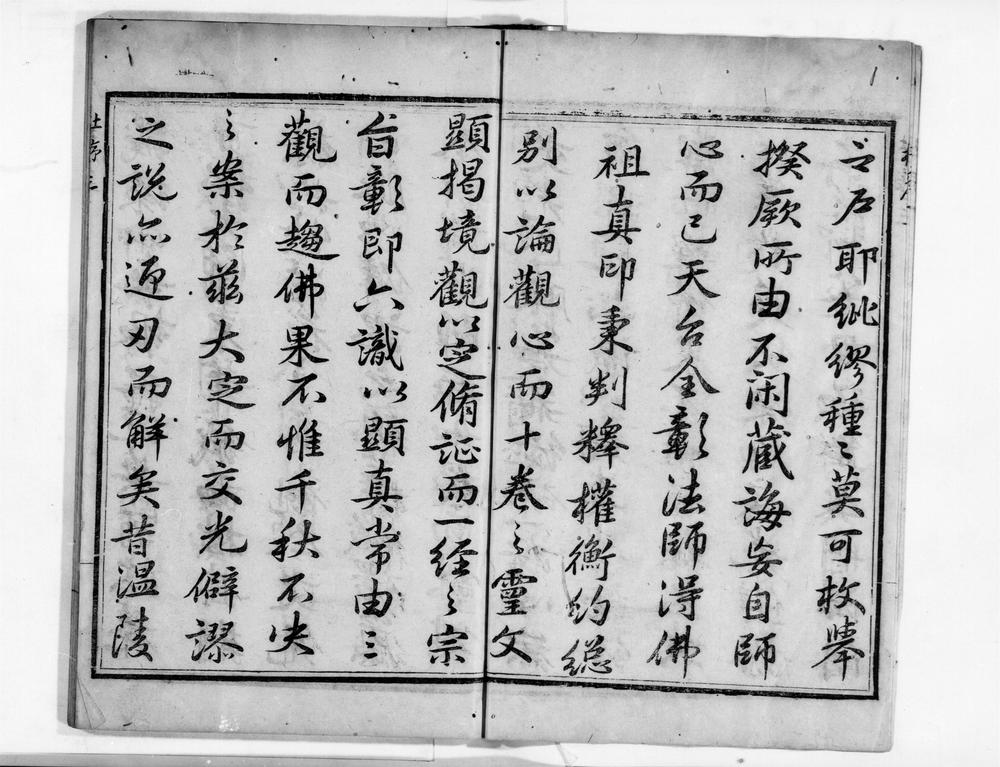 耶紕繆種〻莫可枚舉
揆厥所由不閑藏海妄自師
心而已天台全彰法師淂佛
祖真印秉判釋權衡約緫
別以論觀心而十卷之靈文
顯揭境觀以定脩証而一经之宗
旨彰即六識以顯真常由三
觀而趨佛果不惟千秋不决
之案於茲大定而交光僻謬
之說亦迎刃而解矣昔溫陵